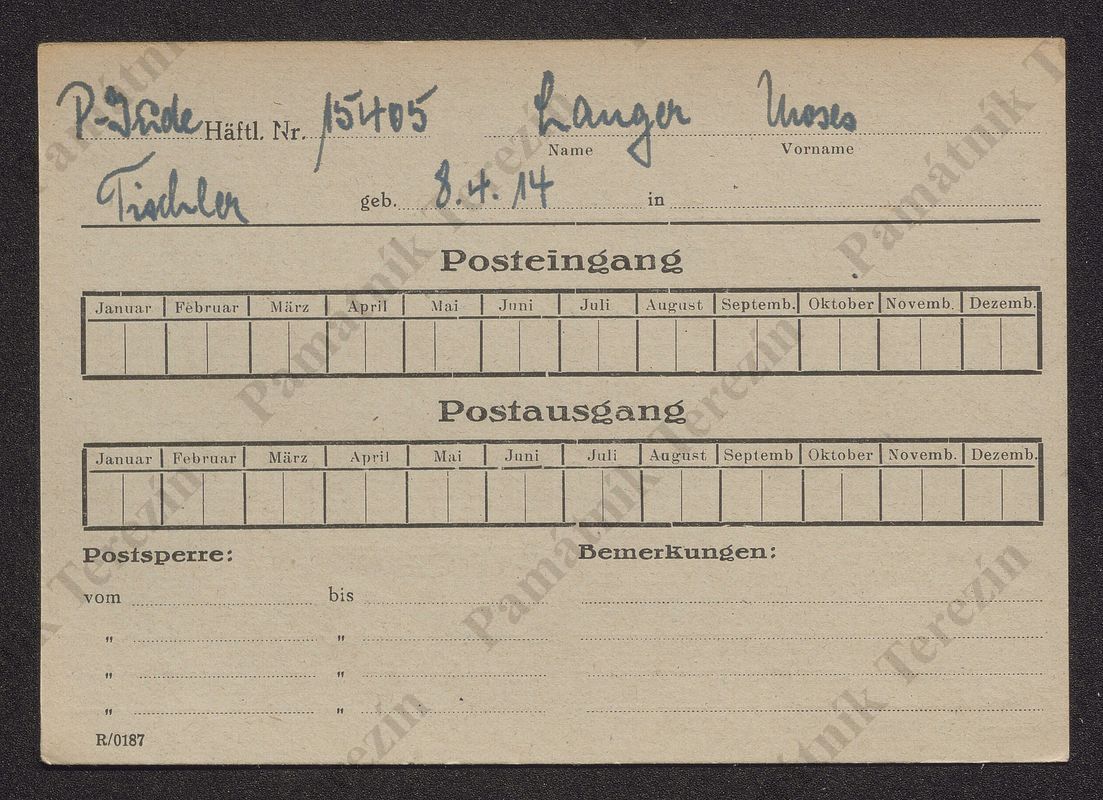 P-Jude Häftl. Nr. 15405 Langer Moses
Name Vorname
Tischler geb. 8.4.14 in
Posteingang
Januar Februar März April Mai Juni Juli August Septemb. Oktober Novemb. Dezemb.
Postausgang
Januar Februar März April Mai Juni Juli August Septemb Oktober Novemb. Dezemb.
Postsperre: Bemerkungen:
vom bis
" "
" "
" "
R/0187
Památník Terezín